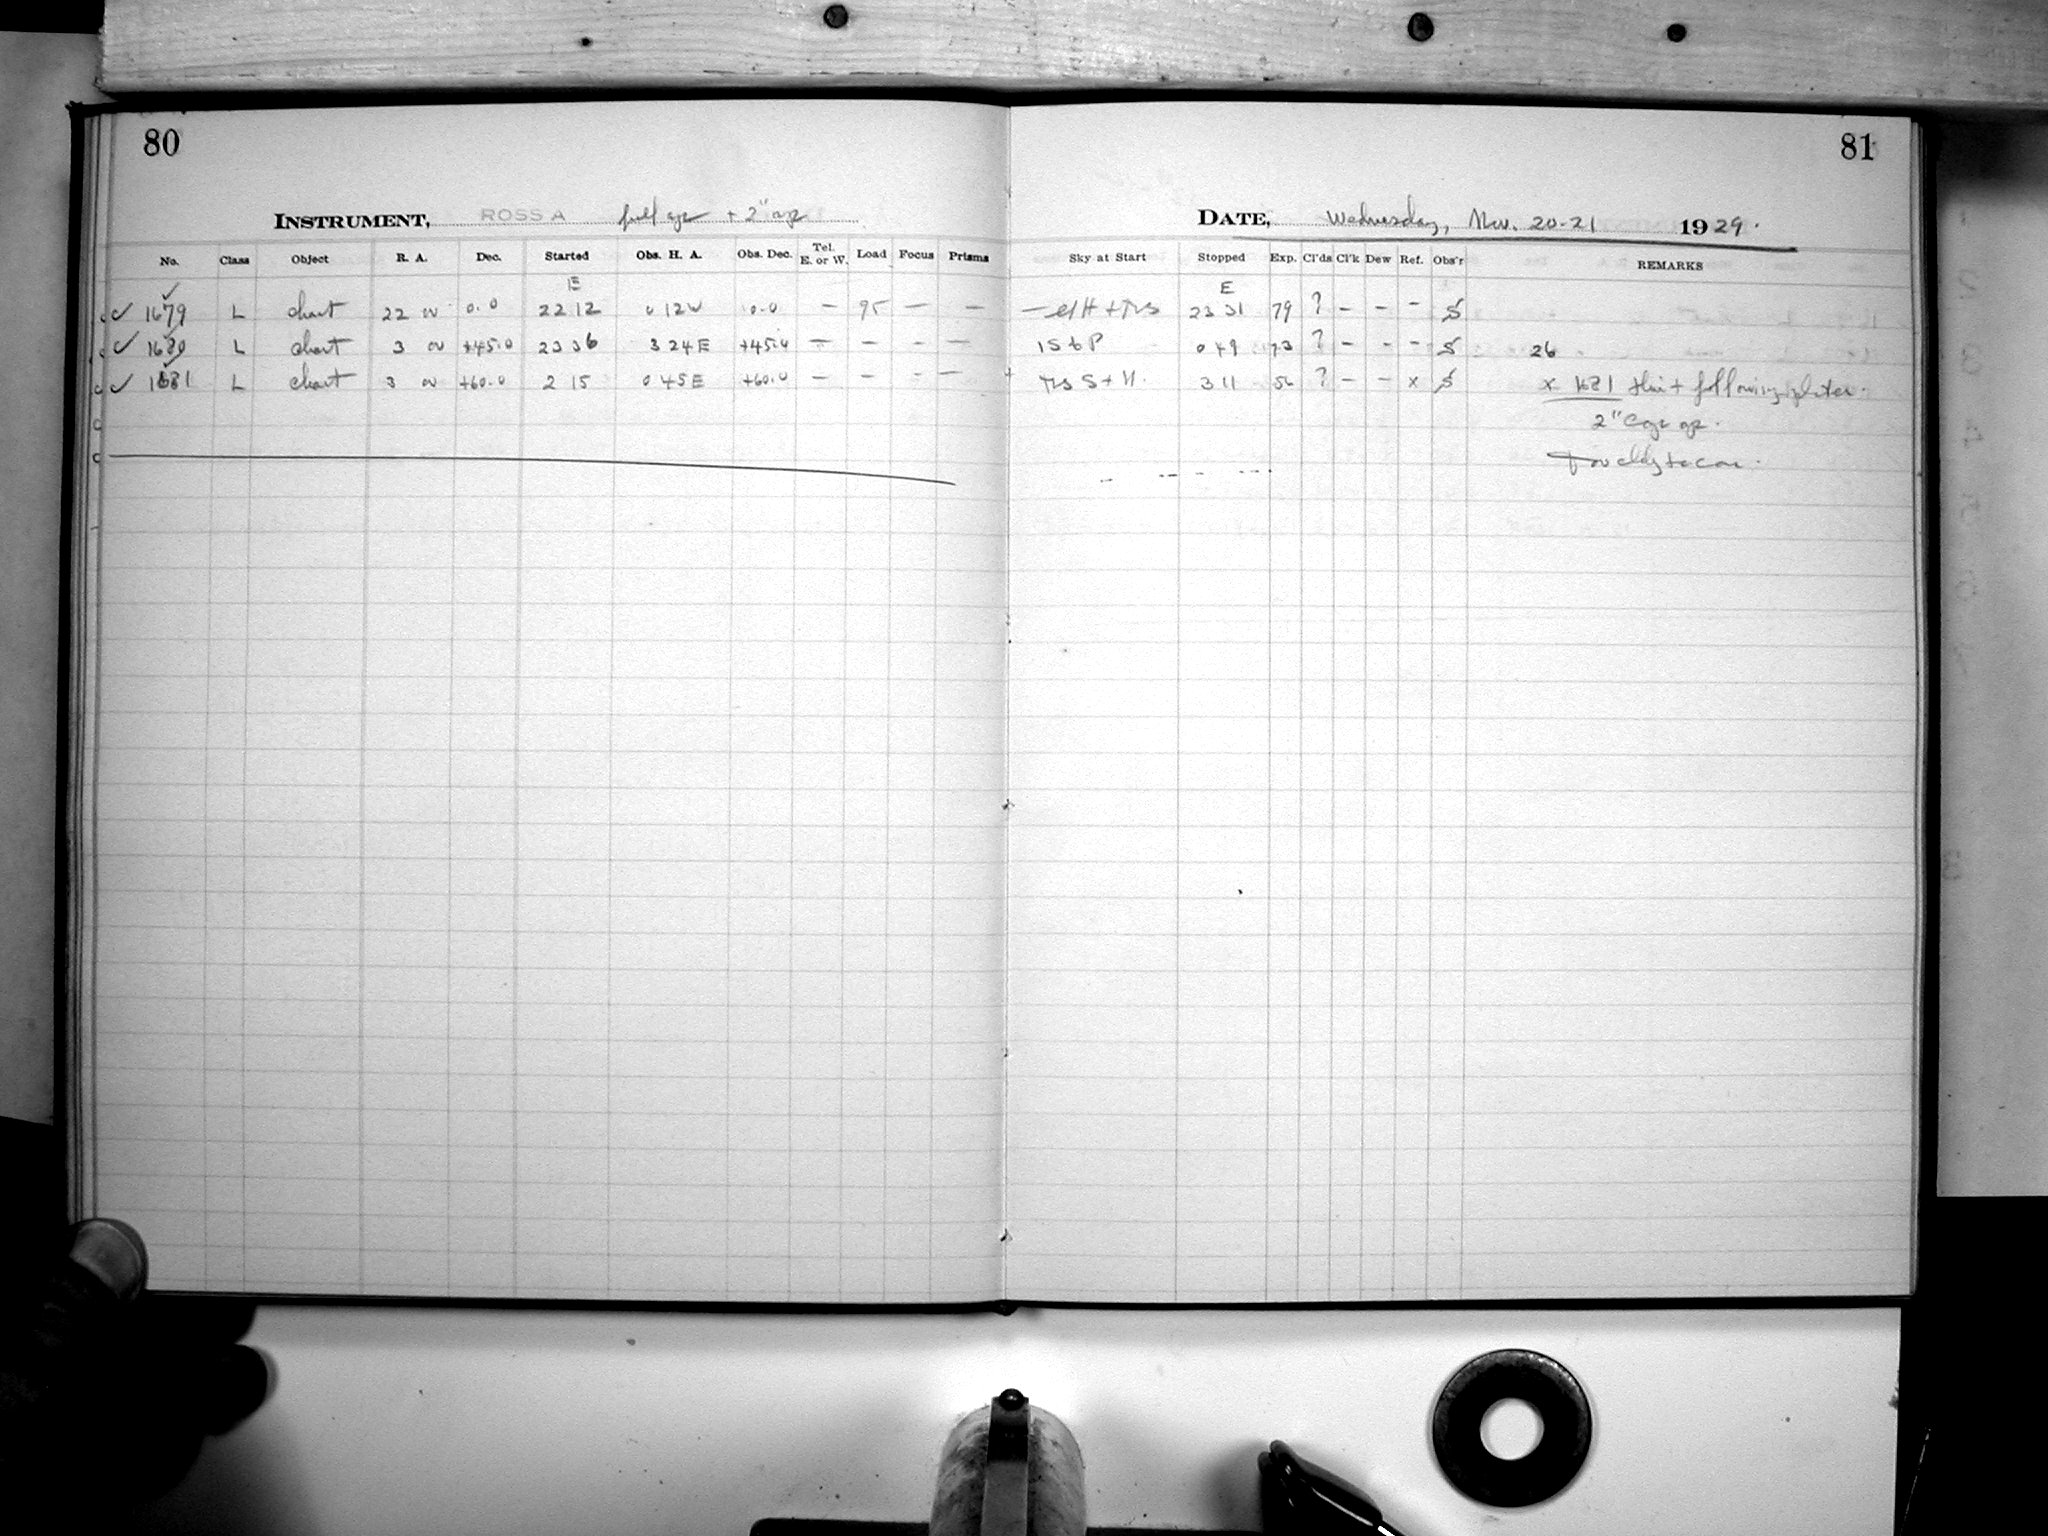 80
INSTRUMENT, ROSS A full ap + 2" ap
No. Class Object R. A. Dec. Started Obs. H. A. Obs. Dec. Tel. E. or W. Load Focus Prisms
E
✓ 1679 L chart 22 00 0.0 22 12 0 12W 0.0 — 95 — —
✓ 1680 L chart 3 00 +45.0 23 36 3 24E +45.0 — — — —
✓ 1681 L chart 3 00 +60.0 2 15 0 45E +60.0 — — - —
81
DATE, Wednesday, Nov. 20-21 1929.
Sky at Start Stopped Exp. Cl'ds Cl'k Dew Ref. Obs'r REMARKS
E
23 31 79 ? — — — S
1S to P 0 49 73 ? - - - S 26
S + H. 3 11 56 ? — — x S x 1681 this + following plates.
2" ap.